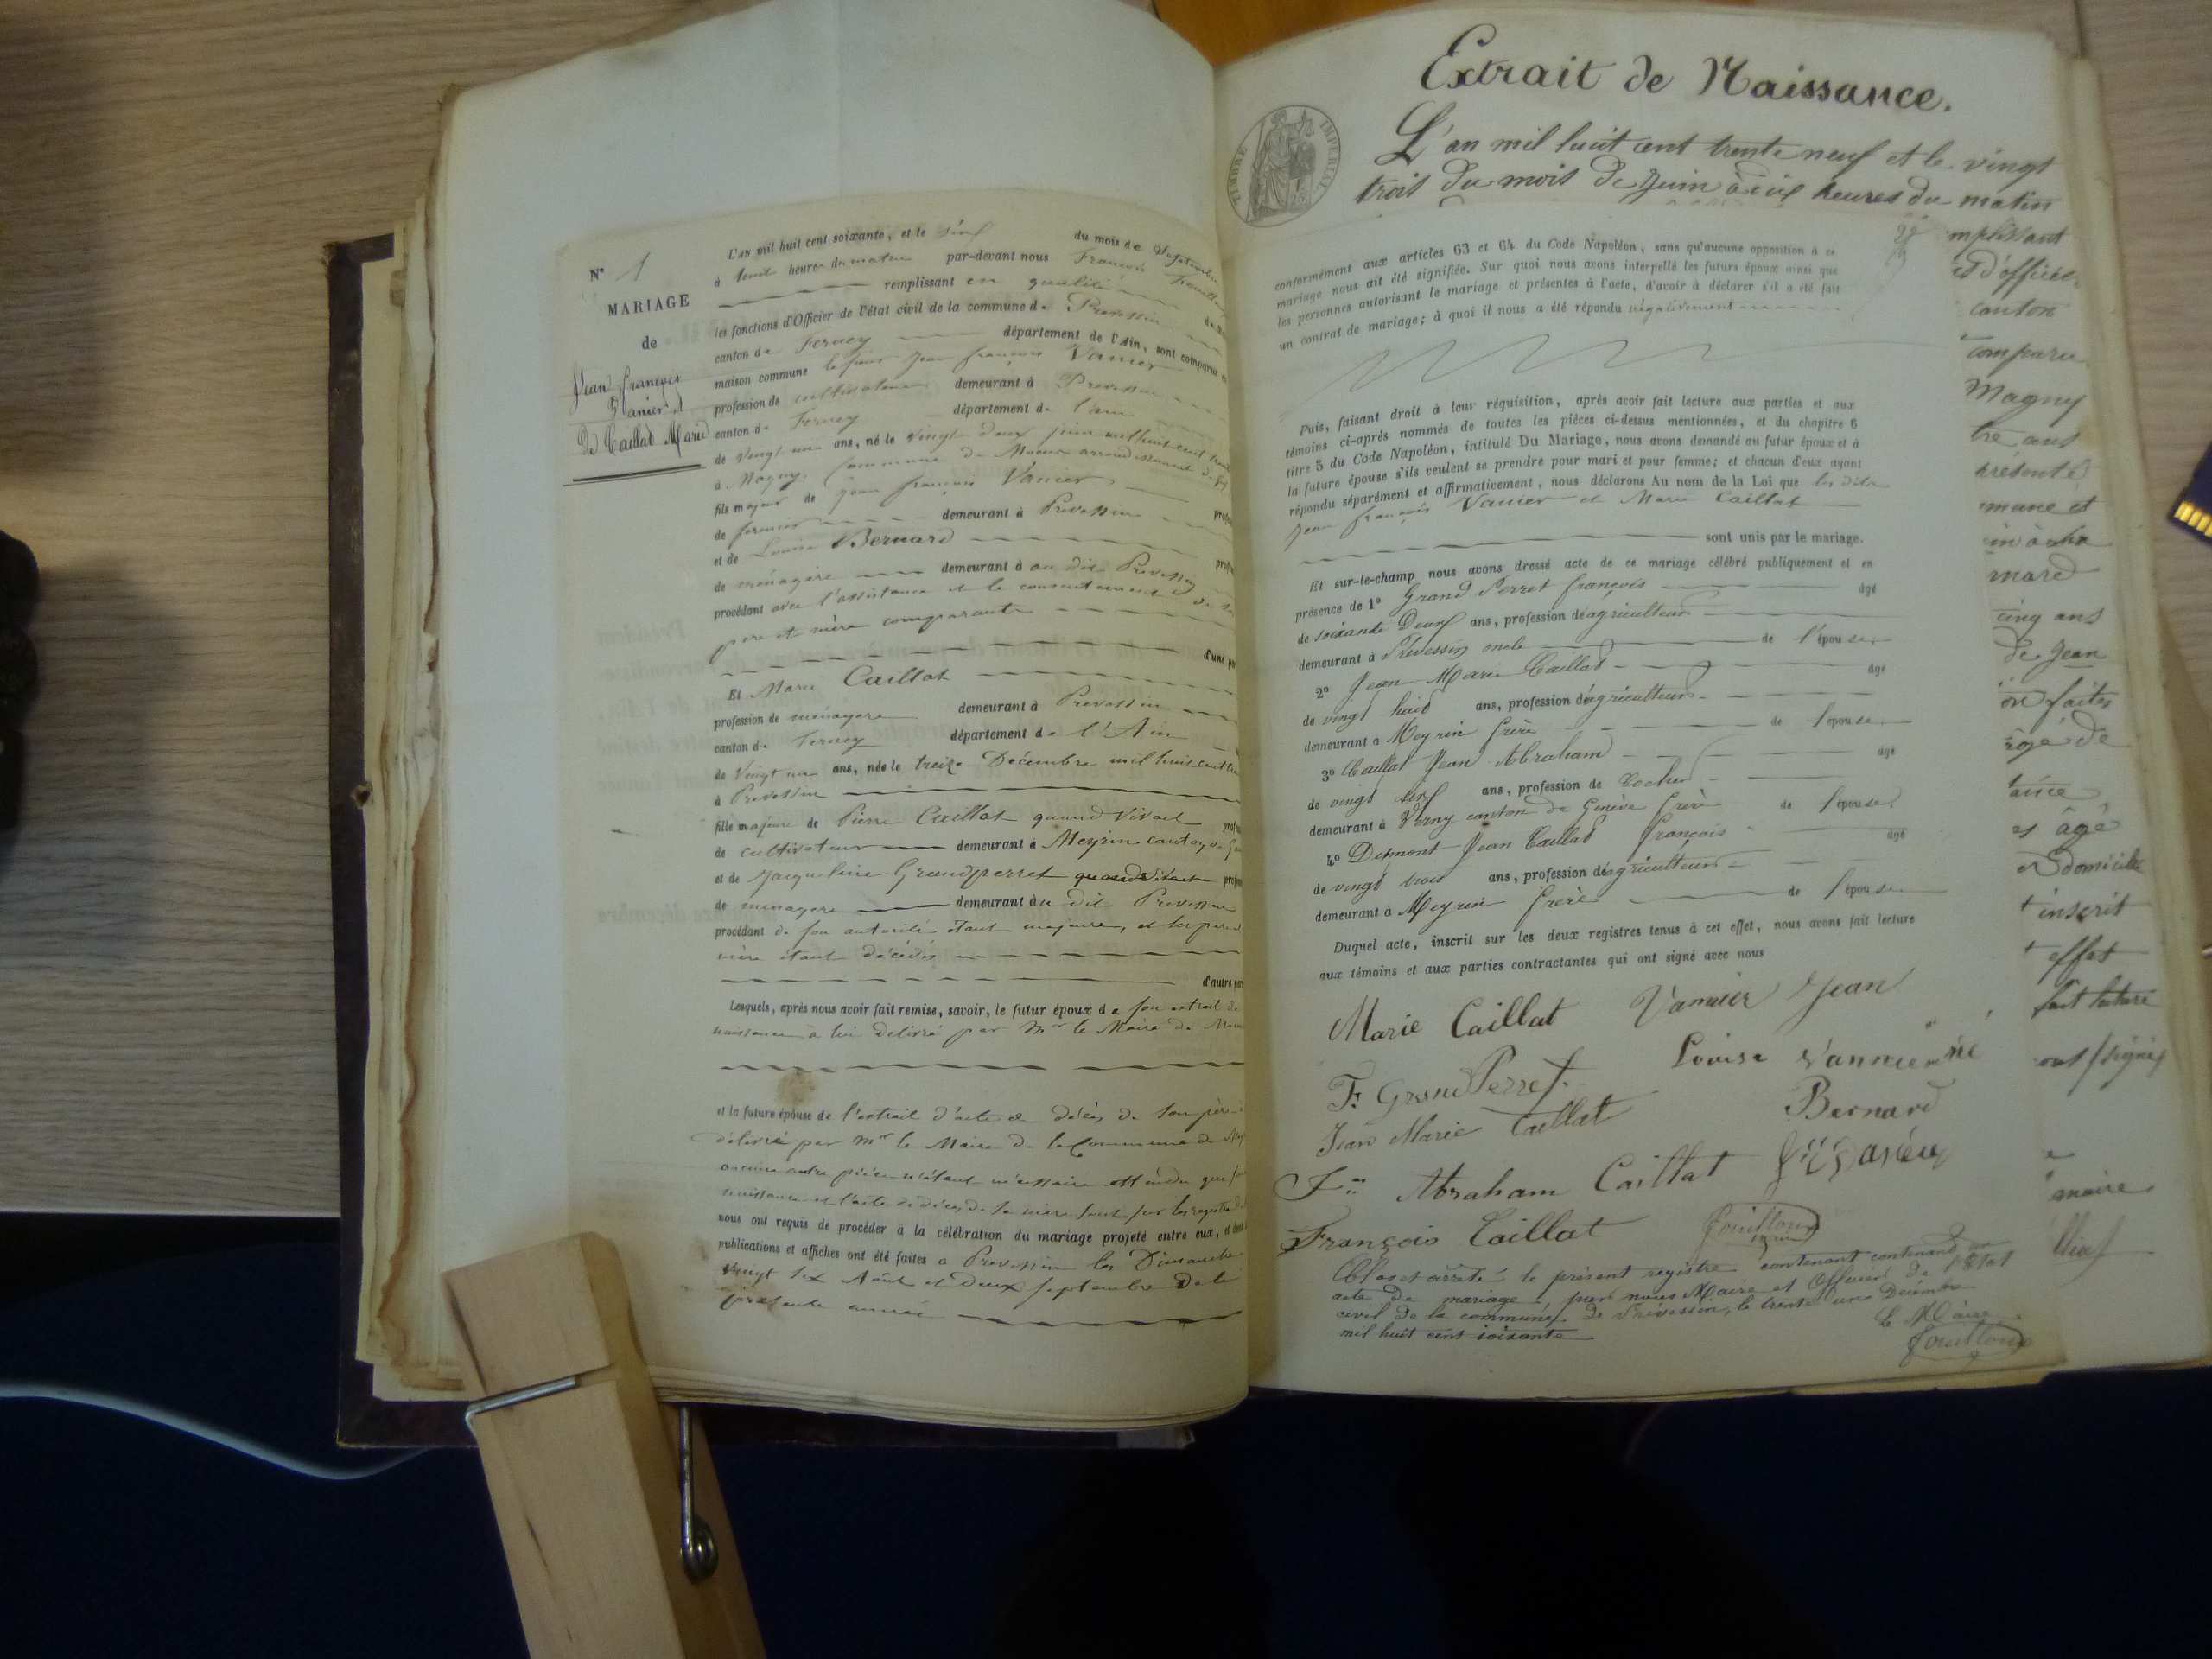 N° 1
MARIAGE
de
Jean françois
Vanier et
de Caillat Marie
L'an mil huit cent soixante, et le du mois de Septembre
à heures du matin par-devant nous François
remplissant en qualité
les fonctions d'Officier de l'état civil de la commune de Prevessin
canton de Ferney département de l'Ain, sont comparus en
maison commune le sieur Jean françois Vanier
profession de cultivateur demeurant à Prevessin
canton de Ferney département de l'ain
de vingt un ans, né le vingt deux juin mil huit cent
à Magny, Commune de arrondissement de
fils majeur de jean françois Vanier
de fermier demeurant à Prevessin
et de Louise Bernard
de ménagère demeurant à au dit Prevessin
procédant avec l'assistance et le consentement de
père et mère comparants
d'une part
Et Marie Caillat
profession de ménagère demeurant à Prevessin
canton de Ferney département de l'Ain
de Vingt un ans, née le treize Décembre mil huit cent
à Prevessin
fille majeure de Pierre Caillat quand vivait
de cultivateur demeurant à Meyrin canton de
et de Jacqueline Grandperret quand vivait
de ménagère demeurant à au dit Prevessin
procédant de son autorité étant majeure, et ses père
mère étant décédés
d'autre part
Lesquels, après nous avoir fait remise, savoir, le futur époux de son extrait de
naissance à lui délivré par Mr le Maire de
et la future épouse de l'extrait d'acte de décès de son père
délivré par Mr le Maire de la Commune de
aucune autre pièce n'étant nécessaire attendu que
naissance et l'acte de décès de sa mère sont sur les registres
nous ont requis de procéder à la célébration du mariage projeté entre eux, et dont
publications et affiches ont été faites à Prevessin les Dimanche
vingt six Août et Deux septembre de la
présente année
Extrait de Naissance.
TIMBRE IMPERIAL
L'an mil huit cent trente neuf et le vingt
trois du mois de Juin à heures du matin
conformément aux articles 63 et 64 du Code Napoléon, sans qu'aucune opposition à ce
mariage nous ait été signifiée. Sur quoi nous avons interpellé les futurs époux ainsi que
les personnes autorisant le mariage et présentes à l'acte, d'avoir à déclarer s'il a été fait
un contrat de mariage; à quoi il nous a été répondu négativement
Puis, faisant droit à leur réquisition, après avoir fait lecture aux parties et aux
témoins ci-après nommés de toutes les pièces ci-dessus mentionnées, et du chapitre 6
titre 5 du Code Napoléon, intitulé Du Mariage, nous avons demandé au futur époux et à
la future épouse s'ils veulent se prendre pour mari et pour femme; et chacun d'eux ayant
répondu séparément et affirmativement, nous déclarons Au nom de la Loi que les dits
Jean françois Vanier et Marie Caillat
sont unis par le mariage.
Et sur-le-champ nous avons dressé acte de ce mariage célébré publiquement et en
présence de 1° Grand Perret françois âgé
de soixante Deux ans, profession de agriculteur
demeurant à Prévessin oncle de l'épouse
2° Jean Marie Caillat âgé
de vingt huit ans, profession de agriculteur
demeurant à Meyrin frère de l'épouse
3° Caillat Jean Abraham âgé
de vingt ans, profession de Cocher
demeurant à canton de Genève frère de l'épouse
4° Jean Caillat françois âgé
de vingt trois ans, profession de agriculteur
demeurant à Meyrin frère de l'épouse
Duquel acte, inscrit sur les deux registres tenus à cet effet, nous avons fait lecture
aux témoins et aux parties contractantes qui ont signé avec nous
Marie Caillat Vannier Jean
F. Grand Perret Louise Vannier né
Jean Marie Caillat Bernard
Abraham Caillat
François Caillat Fouilloux
Clos et arrêté le présent registre contenant contenant un
acte de mariage par nous Maire et Officier de l'Etat
civil de la commune de Prévessin, le trente un Décembre
mil huit cent soixante
Le Maire
Fouilloux
mplissant
d'officier
canton
comparu
Magny
tre ans
présenté
mune et
mard
cinq ans
de Jean
faites
âgé de
âgé
domicilié
inscrit
effet
fait lecture
ont signé
maire